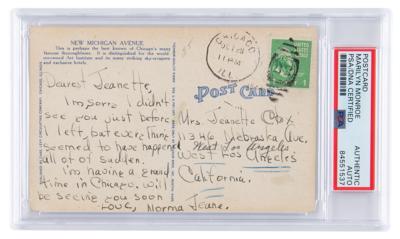 NEW MICHIGAN AVENUE
This is perhaps the best known of Chicago's many
famous thoroughfares. It is distinguished for the world
renowned Art Institute and its many striking sky-scrapers
and exclusive hotels.
CHICAGO
OCT 28
11 PM
ILL.
UNITED STATES
1
POST CARD
Dearest Jeanette,
Im sorry I didn't
see you just before
I left, but everything
seemed to have happened
all of sudden.
I'm having a grand
time in Chicago, will
be seeing you soon
Love, Norma Jeane.
Mrs. Jeanette
11346 Nebraska Ave.
West Los Angeles
West Los Angeles
California.
POSTCARD
MARILYN MONROE
PSA/DNA CERTIFIED
PSA
AUTHENTIC
AUTO
84551537